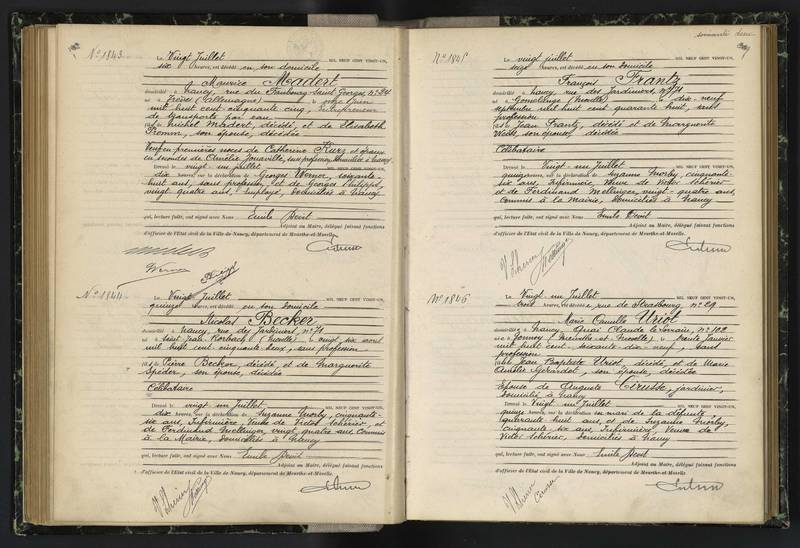 soixante deux
N° 1843
Le Vingt Juillet MIL NEUF CENT VINGT-UN,
six heures, est décédé en son domicile
Maurice Madert
domicilié à Nancy, rue du Faubourg Saint Georges, N° 24
né à Trèves (Allemagne) le onze Juin
mil huit cent cinquante cinq, Entrepreneur
de transports par eau
fils de Michel Madert, décédé, et de Elisabeth
Fromm, son épouse, décédée
Veuf en premières noces de Catherine Kurz et époux
en secondes de Amélie Jouaville, sans profession, domiciliée à Nancy
Dressé le vingt-un juillet MIL NEUF CENT VINGT-UN,
dix heures, sur la déclaration de Georges Werner, soixante-
huit ans, sans profession, et de Georges Philippi,
vingt quatre ans, Employé, domiciliés à Nancy
qui, lecture faite, ont signé avec Nous Emile Devit
Adjoint au Maire, délégué faisant fonctions
d'officier de l'Etat civil de la Ville de Nancy, département de Meurthe-et-Moselle.
Werner
N° 1844
Le Vingt Juillet MIL NEUF CENT VINGT-UN,
quinze heures, est décédé en son Domicile
Nicolas Becker
domicilié à Nancy, rue des Jardiniers, N° 71
né à Saint Jean Rorbach (Moselle) le vingt six avril
mil huit cent cinquante deux, sans profession
fils de Pierre Becker, décédé, et de Marguerite
Spéder, son épouse, décédée
Célibataire
Dressé le vingt-un Juillet MIL NEUF CENT VINGT-UN,
dix heures, sur la déclaration de Suzanne Morby, cinquante-
six ans, Infirmière, Veuve de Victor Schérier, et
de Ferdinand Mellinger, vingt quatre ans, Commis
à la Mairie, domiciliés à Nancy
qui, lecture faite, ont signé avec Nous Emile Devit
Adjoint au Maire, délégué faisant fonctions
d'officier de l'Etat civil de la Ville de Nancy, département de Meurthe-et-Moselle.
N° 1845
Le vingt juillet MIL NEUF CENT VINGT-UN,
seize heures, est décédé en son Domicile
François Frantz
domicilié à Nancy, rue des Jardiniers, N° 71
né à Gomelange (Moselle) le dix-neuf
Septembre mil huit cent quarante huit, sans
profession
fils de Jean Frantz, décédé et de Marguerite
Weiss, son épouse, décédée
Célibataire
Dressé le Vingt-un Juillet MIL NEUF CENT VINGT-UN,
quinze heures, sur la déclaration de Suzanne Morby, cinquante-
six ans, Infirmière, Veuve de Victor Schérier
et de Ferdinand Mellinger, vingt-quatre ans,
Commis à la Mairie, domiciliés à Nancy
qui, lecture faite, ont signé avec Nous Emile Devit
Adjoint au Maire, délégué faisant fonctions
d'officier de l'Etat civil de la Ville de Nancy, département de Meurthe-et-Moselle.
N° 1846
Le Vingt-un Juillet MIL NEUF CENT VINGT-UN,
trois heures, est décédée rue de Strasbourg, N° 29
Marie Camille Uriot
domiciliée à Nancy, Quai Claude le Lorrain, N° 102
née à (Meurthe-et-Moselle) le trente Janvier
mil huit cent soixante dix-neuf, sans
profession
fille de Jean Baptiste Uriot, décédé, et de Marie
Gérardot, son épouse, décédée
Epouse de Auguste Cerusse, jardinier,
domicilié à Nancy
Dressé le Vingt-un Juillet MIL NEUF CENT VINGT-UN,
quinze heures, sur la déclaration du mari de la défunte,
quarante huit ans, et de Suzanne Morby,
cinquante-six ans, Infirmière, Veuve de
Victor Schérier, domiciliés à Nancy
qui, lecture faite, ont signé avec Nous Emile Devit
Adjoint au Maire, délégué faisant fonctions
d'officier de l'Etat civil de la Ville de Nancy, département de Meurthe-et-Moselle.